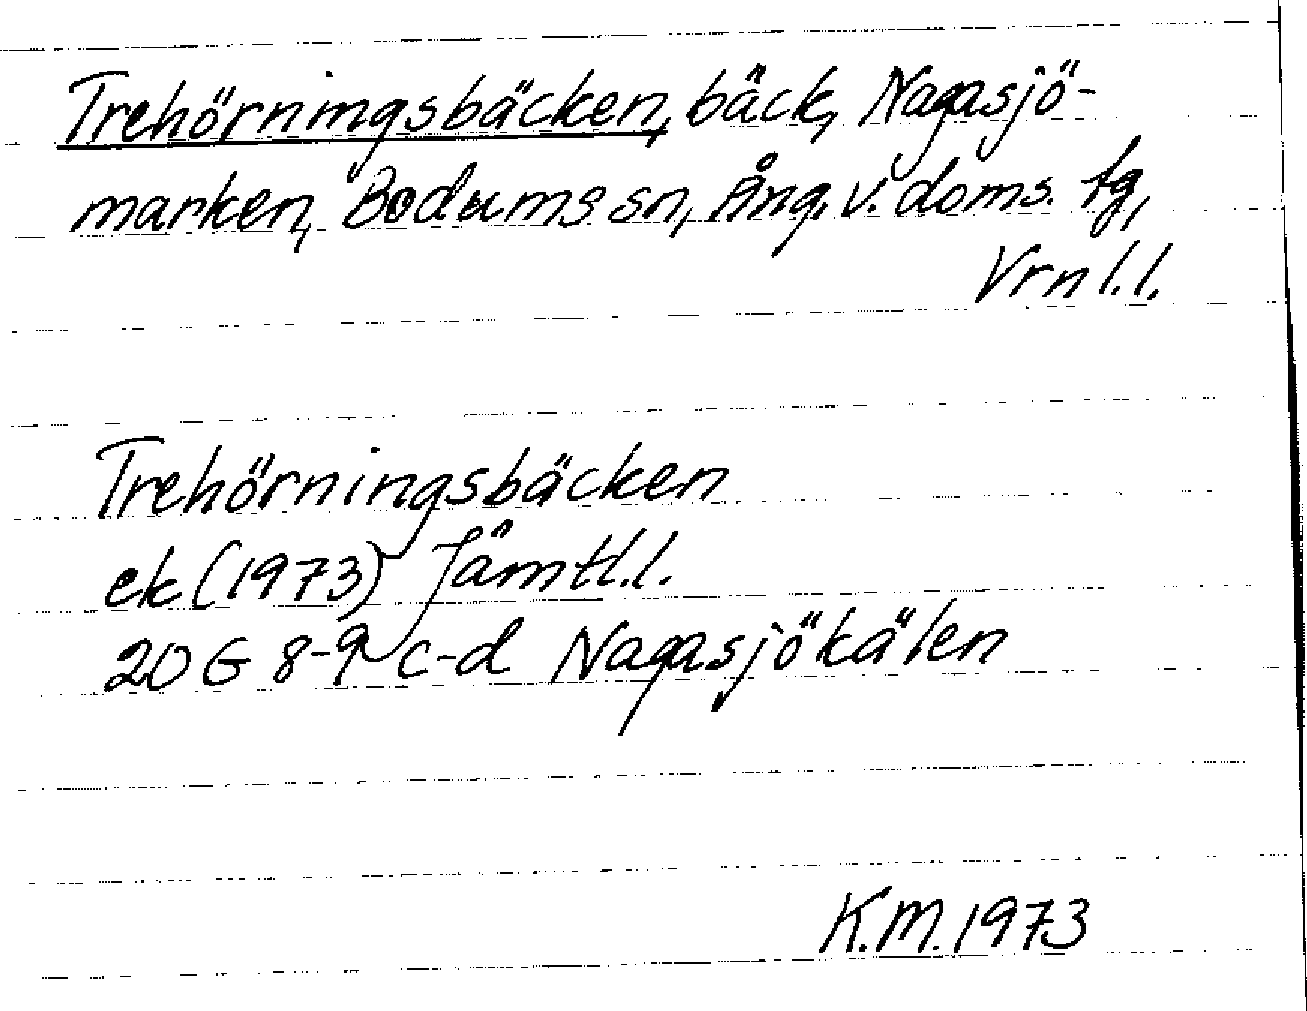 Trehörningsbäcken, bäck, Nagasjö-
marken, Bodums sn, Ång. v. doms. tg,
Vrnl.l.
Trehörningsbäcken
ek (1973) Jämtl.l.
20 G 8-9 c-d Nagasjökälen
K.M. 1973